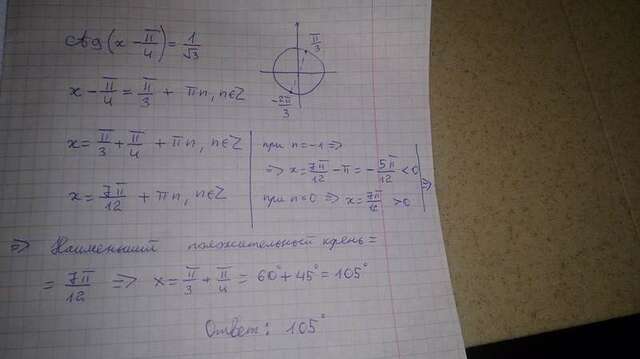 ctg(x - π/4) = 1/√3
π/3
-2π/3
x - π/4 = π/3 + πn, n∈Z
x = π/3 + π/4 + πn, n∈Z
x = 7π/12 + πn, n∈Z
при n = -1 ⇒
⇒ x = 7π/12 - π = - 5π/12 < 0
при n = 0 ⇒ x = 7π/12 > 0
⇒
⇒ Наименьший положительный корень =
= 7π/12 ⇒ x = π/3 + π/4 = 60° + 45° = 105°
Ответ: 105°